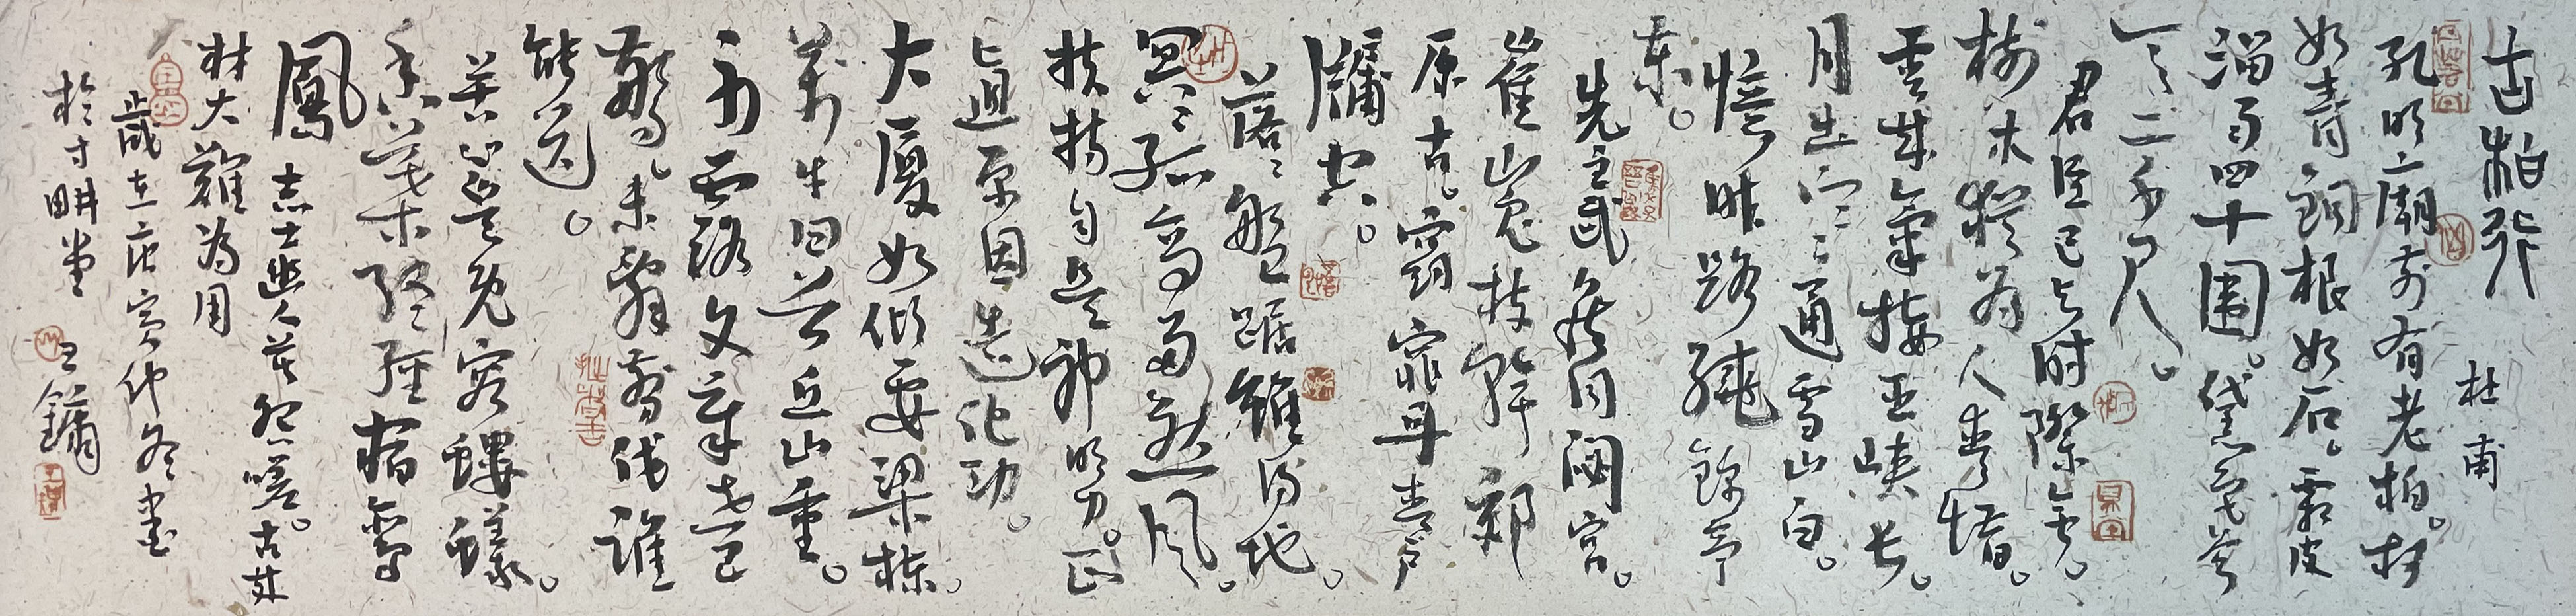 古柏行
杜甫
孔明廟前有老柏。柯
如青銅根如石。霜皮
溜雨四十圍。黛色參
天二千尺。
君臣已與時際會。
樹木猶為人愛惜。
雲來氣接巫峽長。
月出寒通雪山白。
憶昨路繞錦亭
東。
先主武侯同閟宮。
崔嵬枝幹郊
原古。窈窕丹青戶
牖空。
落落盤踞雖得地。
冥冥孤高多烈風。
扶持自是神明力。正
直原因造化功。
大廈如傾要梁棟。
萬牛回首丘山重。
不露文章世已
驚。未辭剪伐誰
能送。
苦心豈免容螻蟻。
香葉終經宿鸞
鳳志士幽人莫怨嗟。古來
材大難為用
歲在庚寅仲冬書
於寸畊堂 王鏞